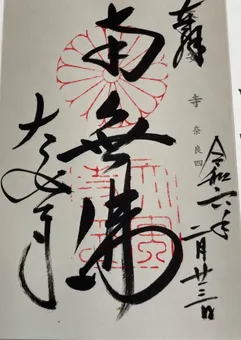 奉拝
寺 奈良四
令和六年
二月廿三日
南無佛
大安寺